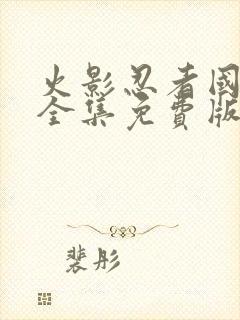 火影忍者國
全集免費版
裴彤